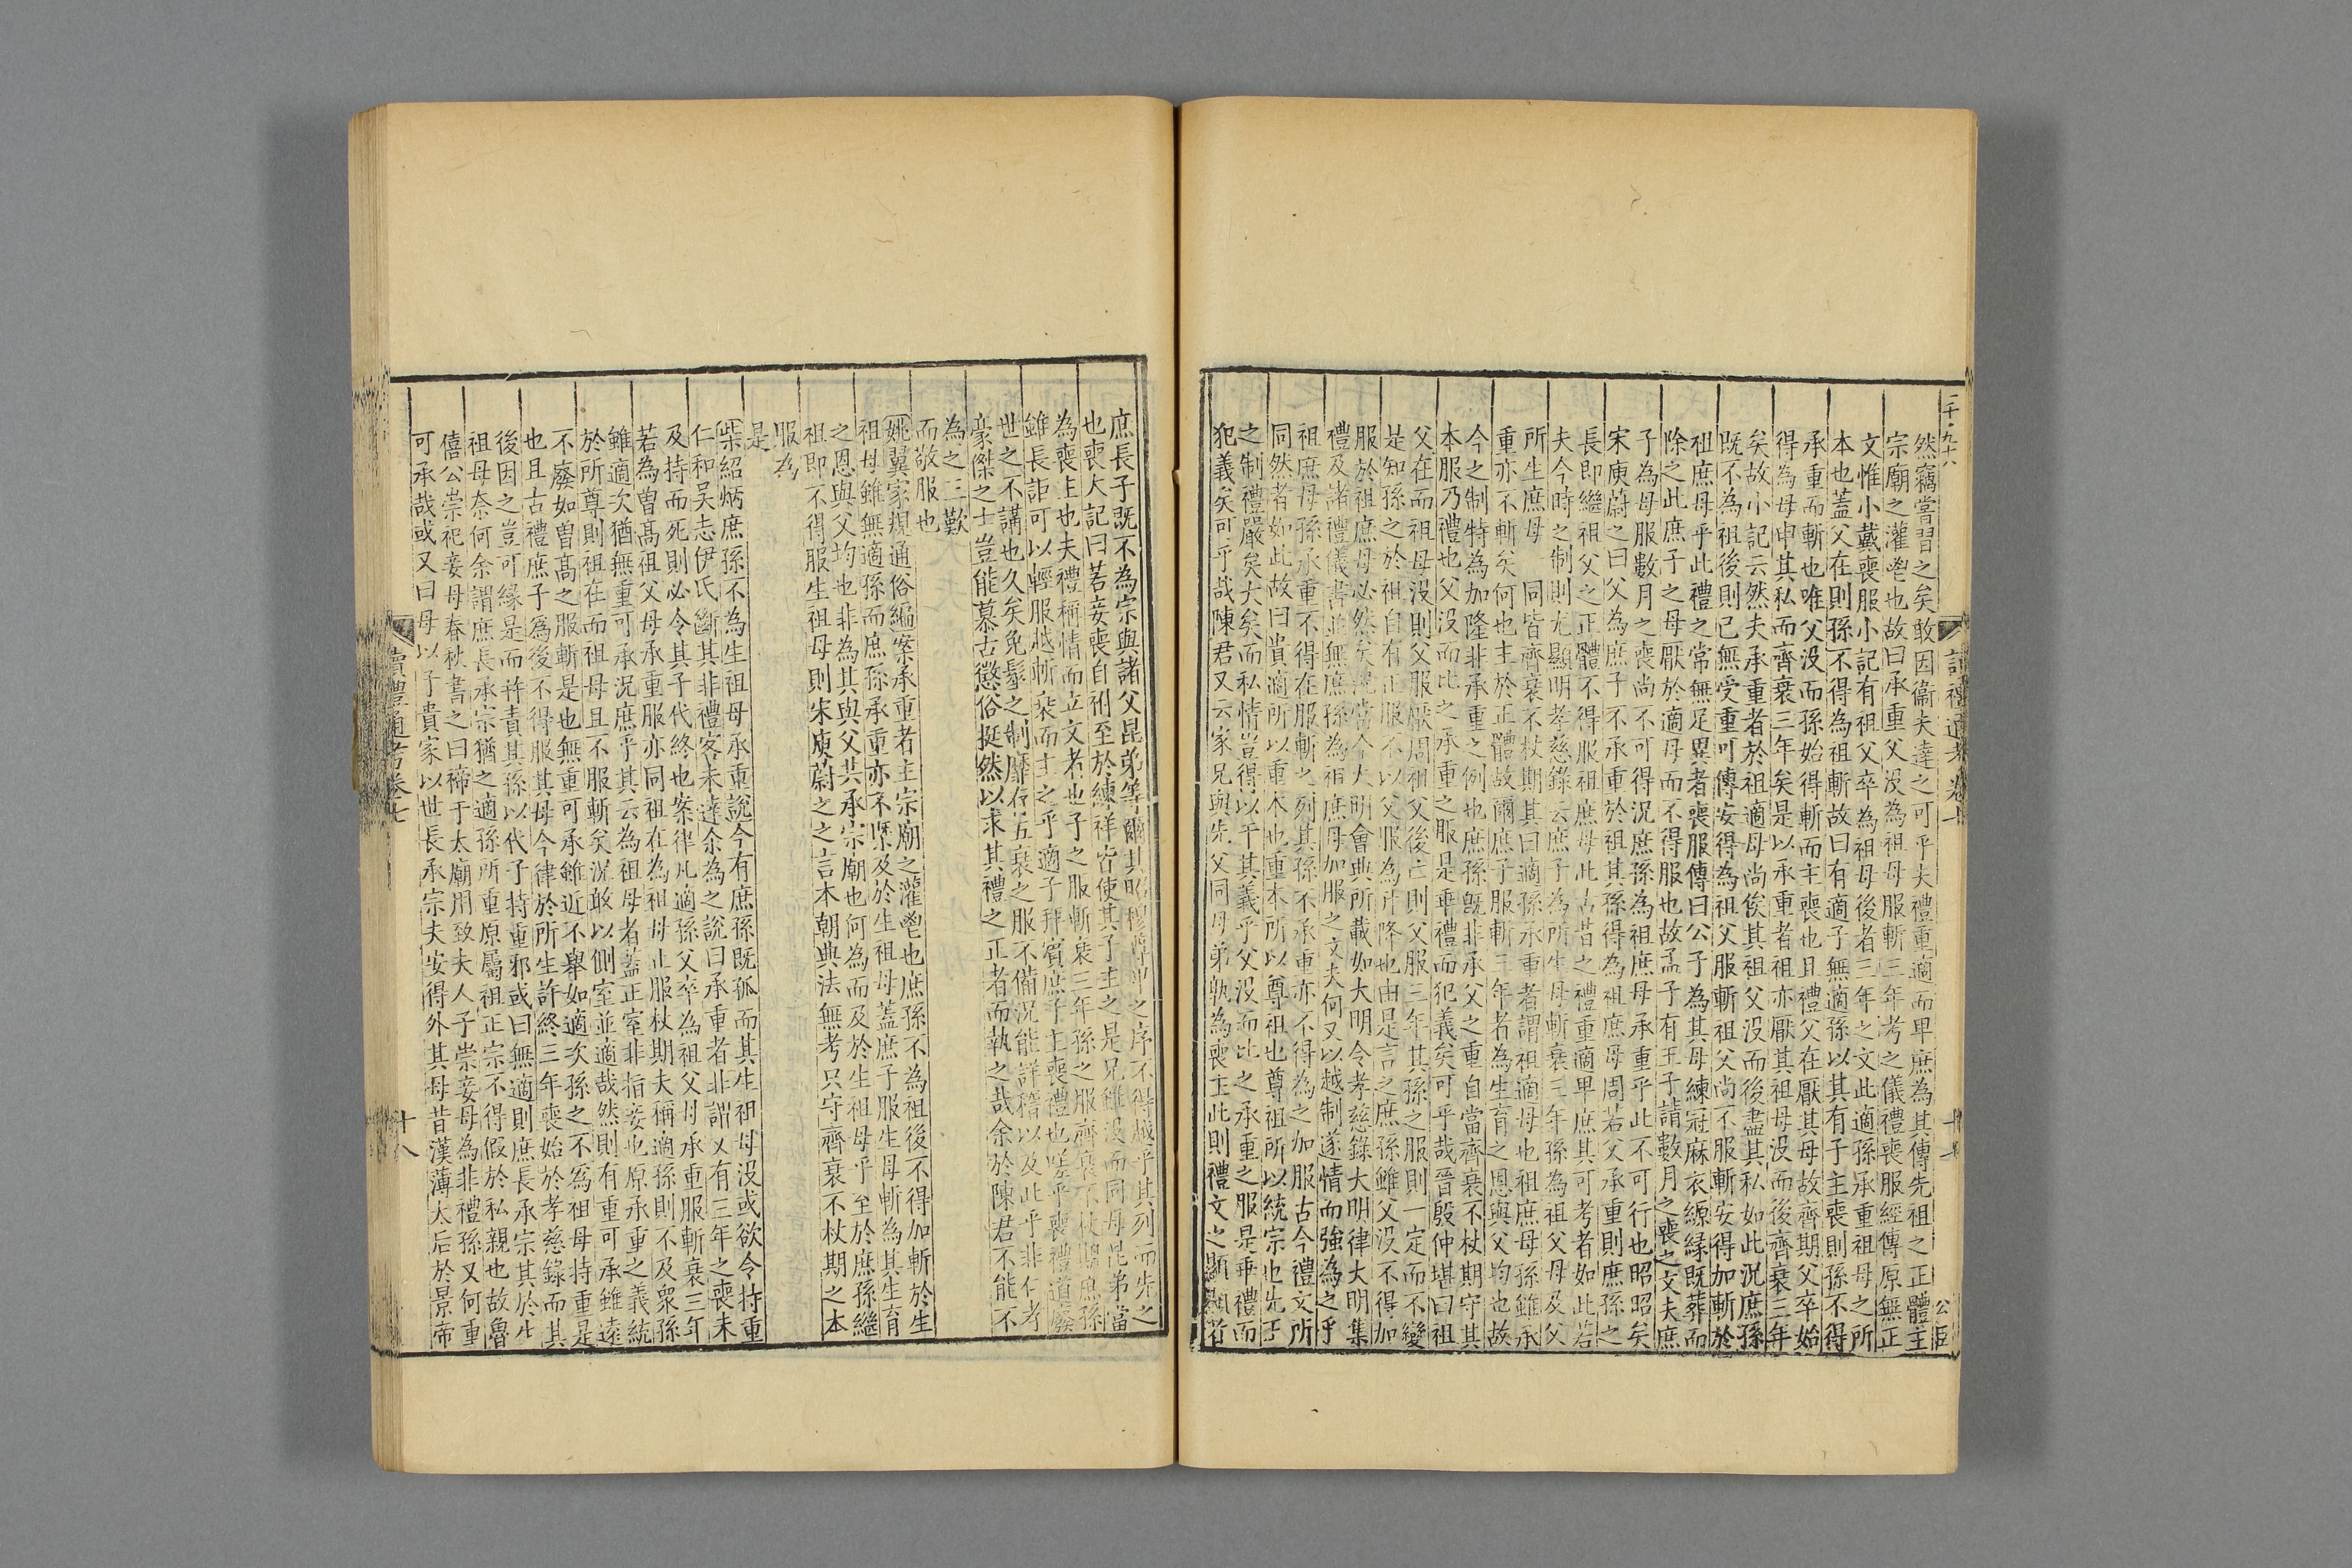 然竊嘗習之矣敢因衞夫達之可乎夫禮重適而卑庶為其傳先祖之正體主
宗廟之灌鬯也故曰承重父沒為祖母服斬三年考之儀禮喪服經傳原無正
文惟小戴喪服小記有祖父卒為祖母後者三年之文此適孫承重祖母之所
本也蓋父在則孫不得為祖斬故曰有適子無適孫以其有子主喪則孫不得
承重而斬也唯父沒而孫始得斬而主喪也且禮父在厭其母故齊期父卒始
得為母申其私而齊衰三年矣是以承重者祖亦厭其祖母沒而後齊衰三年
矣故小記云然夫承重者於祖適母尚俟其祖父沒而後盡其私如此況庶孫
既不為祖後則已無受重可傳安得為祖父服斬祖父尚不服斬安得加斬於
祖庶母乎此禮之常無足異者喪服傳曰公子為其母練冠麻衣縓緣既葬而
除之此庶子之母厭於適母而不得服也故孟子有王子請數月之喪之文夫庶
子為母服數月之喪尚不可得況庶孫為祖庶母承重乎此不可行也昭昭矣
宋庾蔚之曰父為庶子不承重於祖其孫得為祖庶母周若父承重則庶孫之
長即繼祖父之正體不得服祖庶母此古昔之禮重適卑庶其可考者如此若
夫今時之制則尤顯明孝慈錄云庶子為所生母斬衰三年孫為祖父母及父
所生庶母 同皆齊衰不杖期其曰適孫承重者謂祖適母也祖庶母孫雖承
重亦不斬矣何也主於正體故爾庶子服斬三年者為生育之恩與父均也故
今之制特為加隆非承重之例也庶孫旣非承父之重自當齊衰不杖期守其
本服乃禮也父沒而比之承重之服是乖禮而犯義矣可乎哉晉殷仲堪曰祖
父在而祖母沒則父服厭周祖父後亡則父服三年其孫之服則一定而不變
是知孫之於祖自有正服不以父服為升降也由是言之庶孫雖父沒不得加
服於祖庶母必然矣況當今大明會典所載如大明令孝慈錄大明律大明集
禮及諸禮儀書並無庶孫為祖庶母加服之文夫何又以越制遂情而強為之乎
祖庶母孫承重不得在服斬之列其孫不承重亦不得為之加服古今禮文所
同然者如此故曰貴適所以重本也重本所以尊祖也尊祖所以統宗也先王
之制禮嚴矣大矣而私情豈得以干其義乎父沒而比之承重之服是乖禮而
犯義矣可乎哉陳君又云家兄與先父同母弟孰為喪主此則禮文之顯顯者
庶長子既不為宗與諸父昆弟等爾其昭穆尊卑之序不得越乎其列而先之
也喪大記曰若妾喪自祔至於練祥皆使其子主之是兄雖沒而同母昆弟當
為喪主也夫禮稱情而立文者也子之服斬衰三年孫之服齊衰不杖期庶孫
雖長詎可以輕服越斬衰而主之乎適子拜賓庶子主喪禮也嗟乎喪禮道廢
世之不講也久矣免髽之制靡存五衰之服不備況能詳稽以及此乎非仁考
豪傑之士豈能慕古懲俗挺然以求其禮之正者而執之哉余於陳君不能不
為之三歎
而敬服也
姚翼家規通俗編案承重者主宗廟之灌鬯也庶孫不為祖後不得加斬於生
祖母雖無適孫而庶孫承重亦不槩及於生祖母蓋庶子服生母斬為其生育
之恩與父均也非為其與父共承宗廟也何為而及於生祖母乎至於庶孫繼
祖即不得服生祖母則宋庾蔚之之言本朝典法無考只守齊衰不杖期之本
服為
是
柴紹炳庶孫不為生祖母承重說今有庶孫既孤而其生祖母沒或欲令持重
仁和吴志伊氏斷其非禮客未達余為之說曰承重者非謂父有三年之喪未
及持而死則必令其子代終也案律凡適孫父卒為祖父母承重服斬衰三年
若為曾髙祖父母承重服亦同祖在為祖母止服杖期夫稱適孫則不及衆孫
雖適次猶無重可承況庶乎其云為祖母者蓋正室非指妾也原承重之義統
於所尊則祖在而祖母且不服斬矣況敢以側室並適哉然則有重可承雖遠
不廢如曾髙之服斬是也無重可承雖近不舉如適次孫之不爲祖母持重是
也且古禮庶子爲後不得服其母今律於所生許終三年喪始於孝慈錄而其
後因之豈可緣是而許責其孫以代子持重邪或曰無適則庶長承宗其於生
祖母奈何余謂庶長承宗猶之適孫所重原屬祖正宗不得假於私親也故魯
僖公崇祀妾母春秋書之曰禘于太廟用致夫人子崇妾母為非禮孫又何重
可承哉或又曰母以子貴家以世長承宗夫安得外其母昔漢薄太后於景帝
讀禮通考卷七
十八